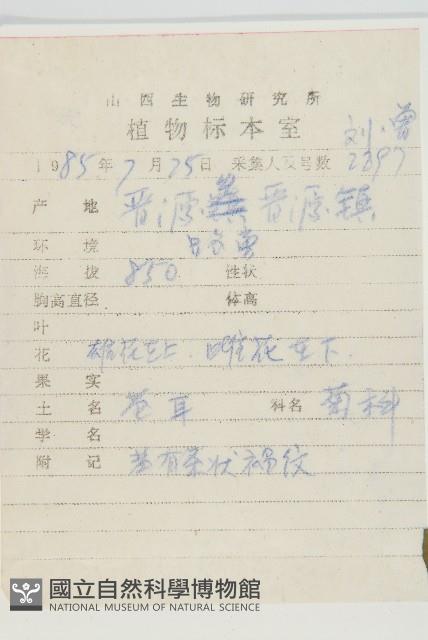 山西生物研究所
植物标本室
刘、曾
1985年7月25日 采集人及号数 2397
产地 晋源 晋源镇
环境
海拔 850 性状
胸高直径 体高
叶
花 雄花在上 雌花在下
果实
土名 苍耳 科名 菊科
学名
附记 茎有条状褐纹
國立自然科學博物館
NATIONAL MUSEUM OF NATURAL SCIENCE